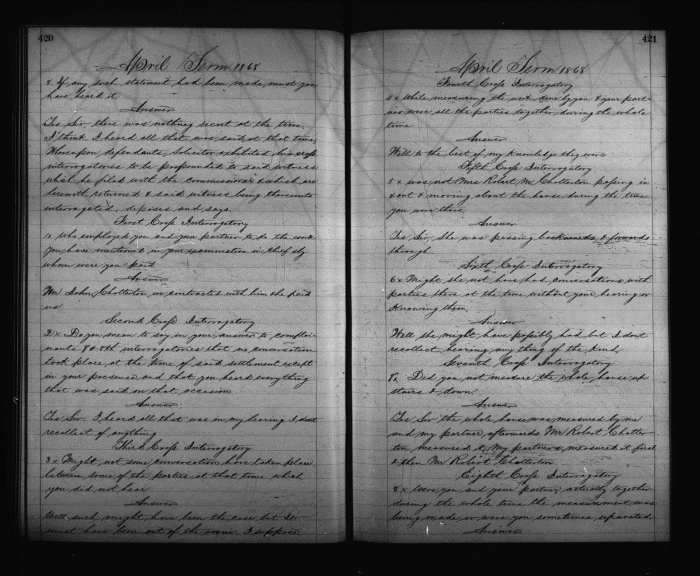 420
April Term 1868
8 If any such statement had been made, must you
have heard it
Answer
Yes Sir, there was nothing secret at the time,
I think I heard all that was said at that time,
Whereupon defendants Solicitor exhibited his cross
interrogatories to be propounded to said witness
which he filed with the commissioner & which are
herewith returned & said witness being thereunto
interrogated, deposes and says
First Cross Interrogatory
1x Who employed you and your partner to do the work
you have mentioned in your examination in chief & by
whom were you paid
Answer
Mr John Chatterton, we contracted with him & he paid
us
Second Cross Interrogatory
2x Do you mean to say in your answer to complai-
nants 7 & 8th interrogatories that no conversation
took place at the time of said settlement except
in your presence and that you heard everything
that was said on that occasion
Answer
Yes Sir I heard all that was in my hearing I dont
recollect of anything
Third Cross Interrogatory
3x Might not some conversation have taken place
between some of the parties at that time which
you did not hear
Answer
Well such might have been the case but it
must have been out of the room, I suppose
421
April Term 1868
Fourth Cross Interrogatory
4x While measuring the work done by you & your part-
ner were all the parties together during the whole
time
Answer
Well to the best of my knowledge they were
Fifth Cross Interrogatory
5x Was not Mrs Robert M. Chatterton passing in
& out & moving about the house during the time
you were there
Answer
Yes Sir She was passing backwards & forwards
through
Sixth Cross Interrogatory
6x Might she not have had conversations with
parties there at the time without your hearing or
Knowing them,
Answer
Well she might have possibly had but I dont
recollect hearing any thing of the kind
Seventh Cross Interrogatory
7x Did you not measure the whole house up
stairs & down
Answer
Yes Sir the whole house was measured by me
and my partner, afterwards Mr Robert Chatter-
ton measured it, My partner measured it first
& then Mr Robert Chatterton
Eighth Cross Interrogatory
8x Were you and your partner actually together
during the whole time the measurement was
being made, or were you sometimes separated
Answer